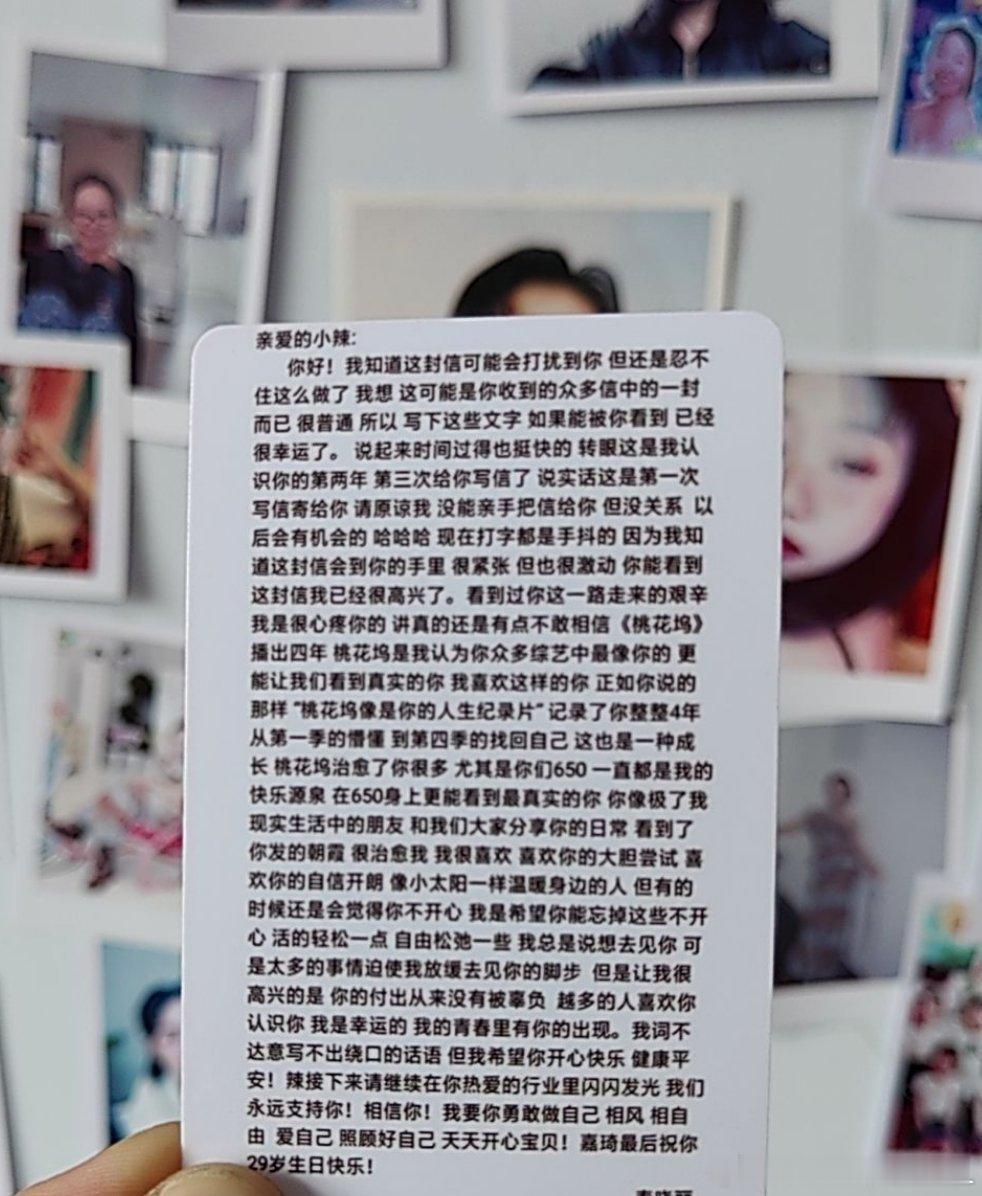 亲爱的小辣:
你好！我知道这封信可能会打扰到你 但还是忍不
住这么做了 我想 这可能是你收到的众多信中的一封
而已 很普通 所以 写下这些文字 如果能被你看到 已经
很幸运了。 说起来时间过得也挺快的 转眼这是我认
识你的第两年 第三次给你写信了 说实话这是第一次
写信寄给你 请原谅我 没能亲手把信给你 但没关系 以
后会有机会的 哈哈哈 现在打字都是手抖的 因为我知
道这封信会到你的手里 很紧张 但也很激动 你能看到
这封信我已经很高兴了。看到过你这一路走来的艰辛
我是很心疼你的 讲真的还是有点不敢相信《桃花坞》
播出四年 桃花坞是我认为你众多综艺中最像你的 更
能让我们看到真实的你 我喜欢这样的你 正如你说的
那样 “桃花坞像是你的人生纪录片” 记录了你整整4年
从第一季的懵懂 到第四季的找回自己 这也是一种成
长 桃花坞治愈了你很多 尤其是你们650 一直都是我的
快乐源泉 在650身上更能看到最真实的你 你像极了我
现实生活中的朋友 和我们大家分享你的日常 看到了
你发的朝霞 很治愈我 我很喜欢 喜欢你的大胆尝试 喜
欢你的自信开朗 像小太阳一样温暖身边的人 但有的
时候还是会觉得你不开心 我是希望你能忘掉这些不开
心 活的轻松一点 自由松弛一些 我总是说想去见你 可
是太多的事情迫使我放缓去见你的脚步 但是让我很
高兴的是 你的付出从来没有被辜负 越多的人喜欢你
认识你 我是幸运的 我的青春里有你的出现。我词不
达意写不出绕口的话语 但我希望你开心快乐 健康平
安！辣接下来请继续在你热爱的行业里闪闪发光 我们
永远支持你！相信你！我要你勇敢做自己 相风 相自
由 爱自己 照顾好自己 天天开心宝贝！嘉琦最后祝你
29岁生日快乐！